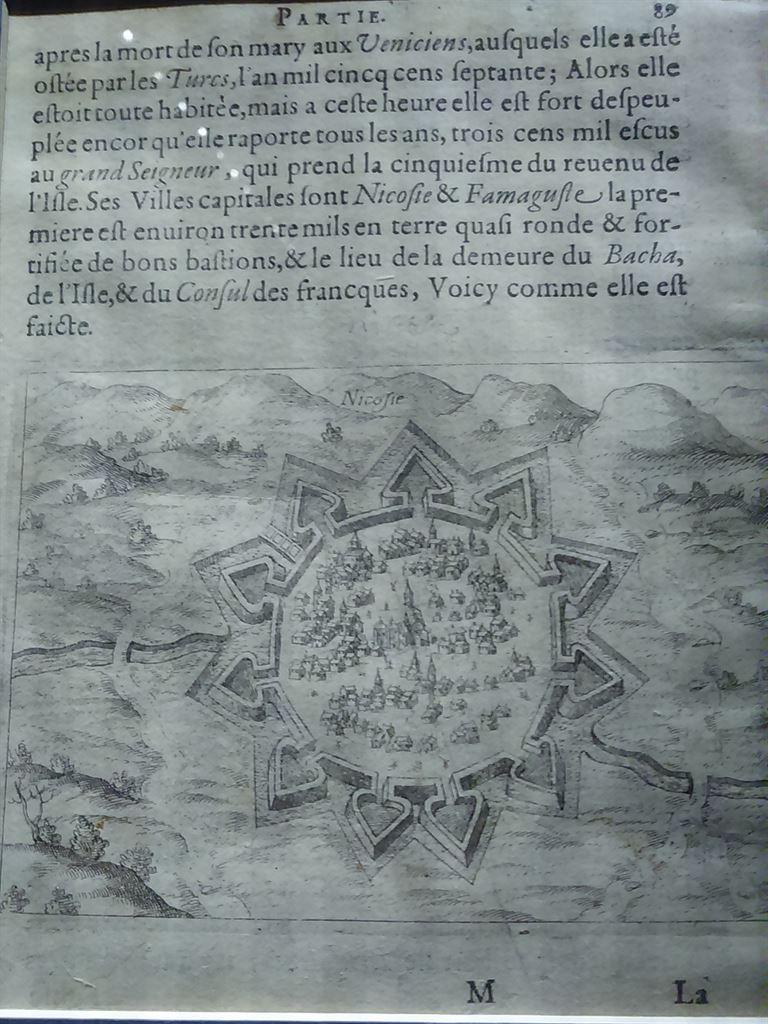 PARTIE. 89
apres la mort de ſon mary aux Veniciens, auſquels elle a eſté
oſtée par les Turcs, l'an mil cincq cens ſeptante; Alors elle
eſtoit toute habitèe, mais a ceſte heure elle eſt fort deſpeu-
plée encor qu'elle raporte tous les ans, trois cens mil eſcus
au grand Seigneur, qui prend la cinquieſme du reuenu de
l'Iſle. Ses Villes capitales ſont Nicoſie & Famaguſte la pre-
miere eſt enuiron trente mils en terre quaſi ronde & for-
tifiée de bons baſtions, & le lieu de la demeure du Bacha,
de l'Iſle, & du Conſul des francques, Voicy comme elle eſt
faicte.
Nicoſie
M La